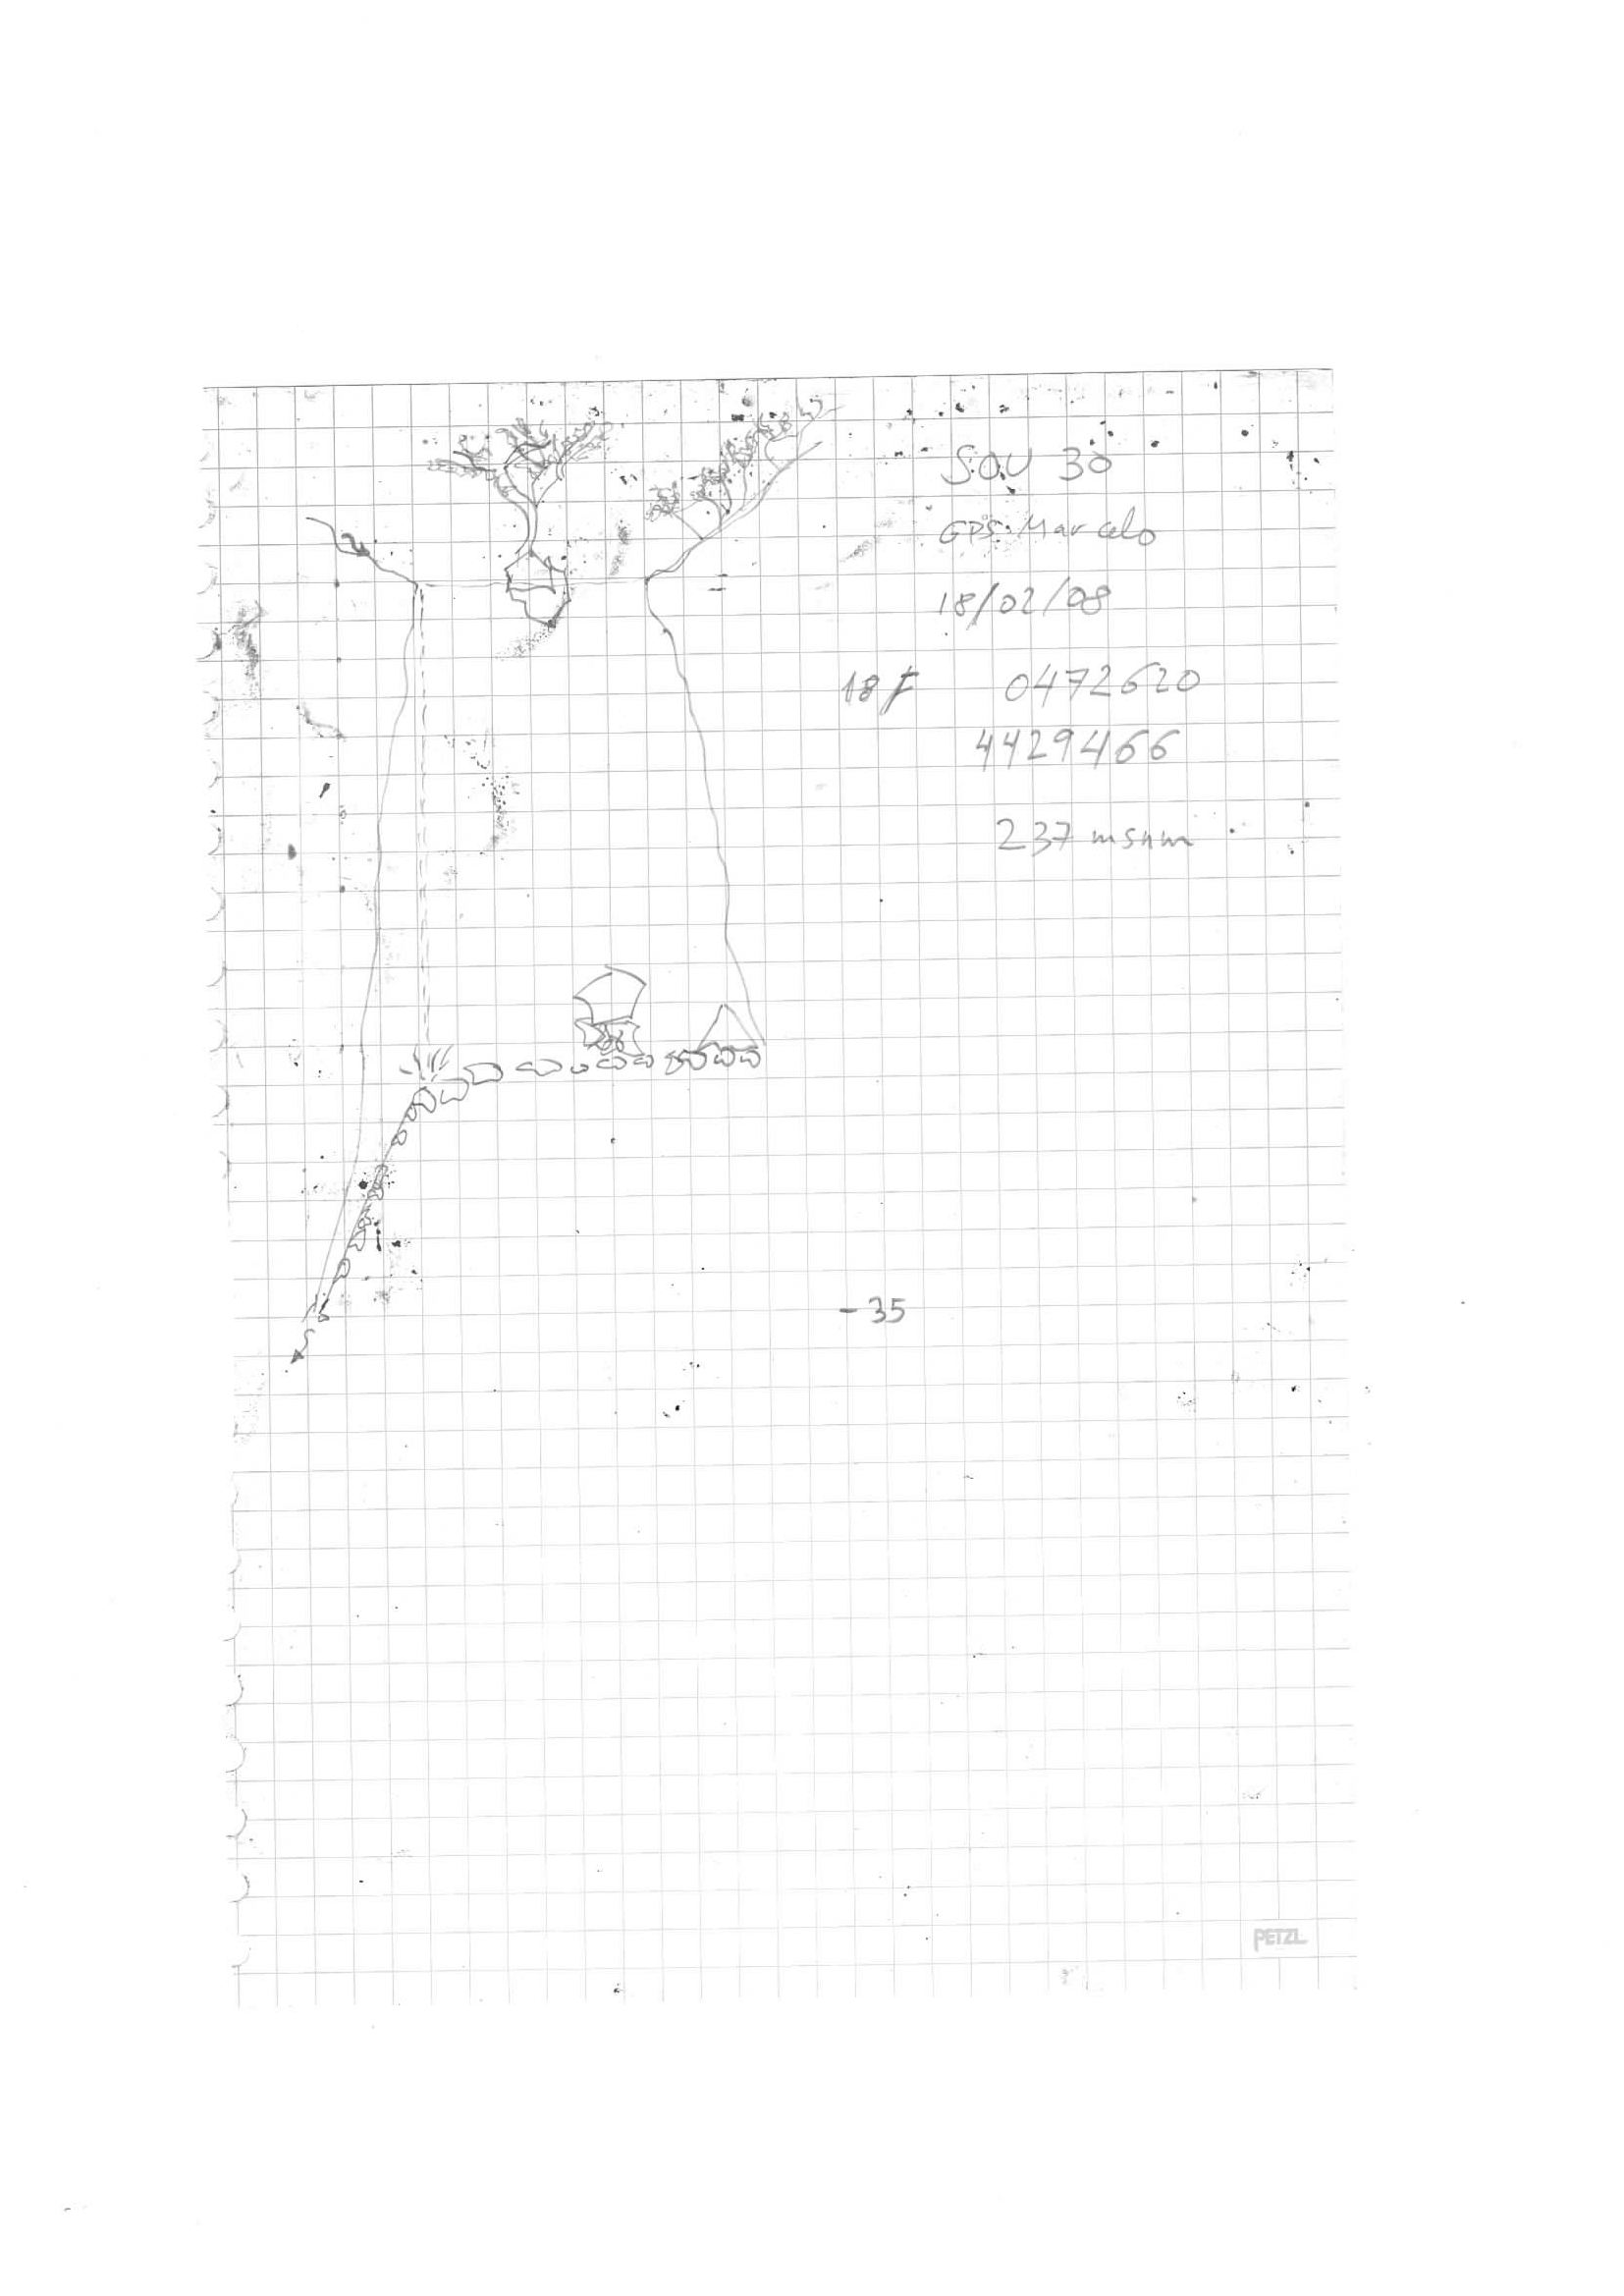 SOU 30
GPS: Marcelo
18/02/08
18 F 0472620
4429466
237 msnm
-35
PETZL